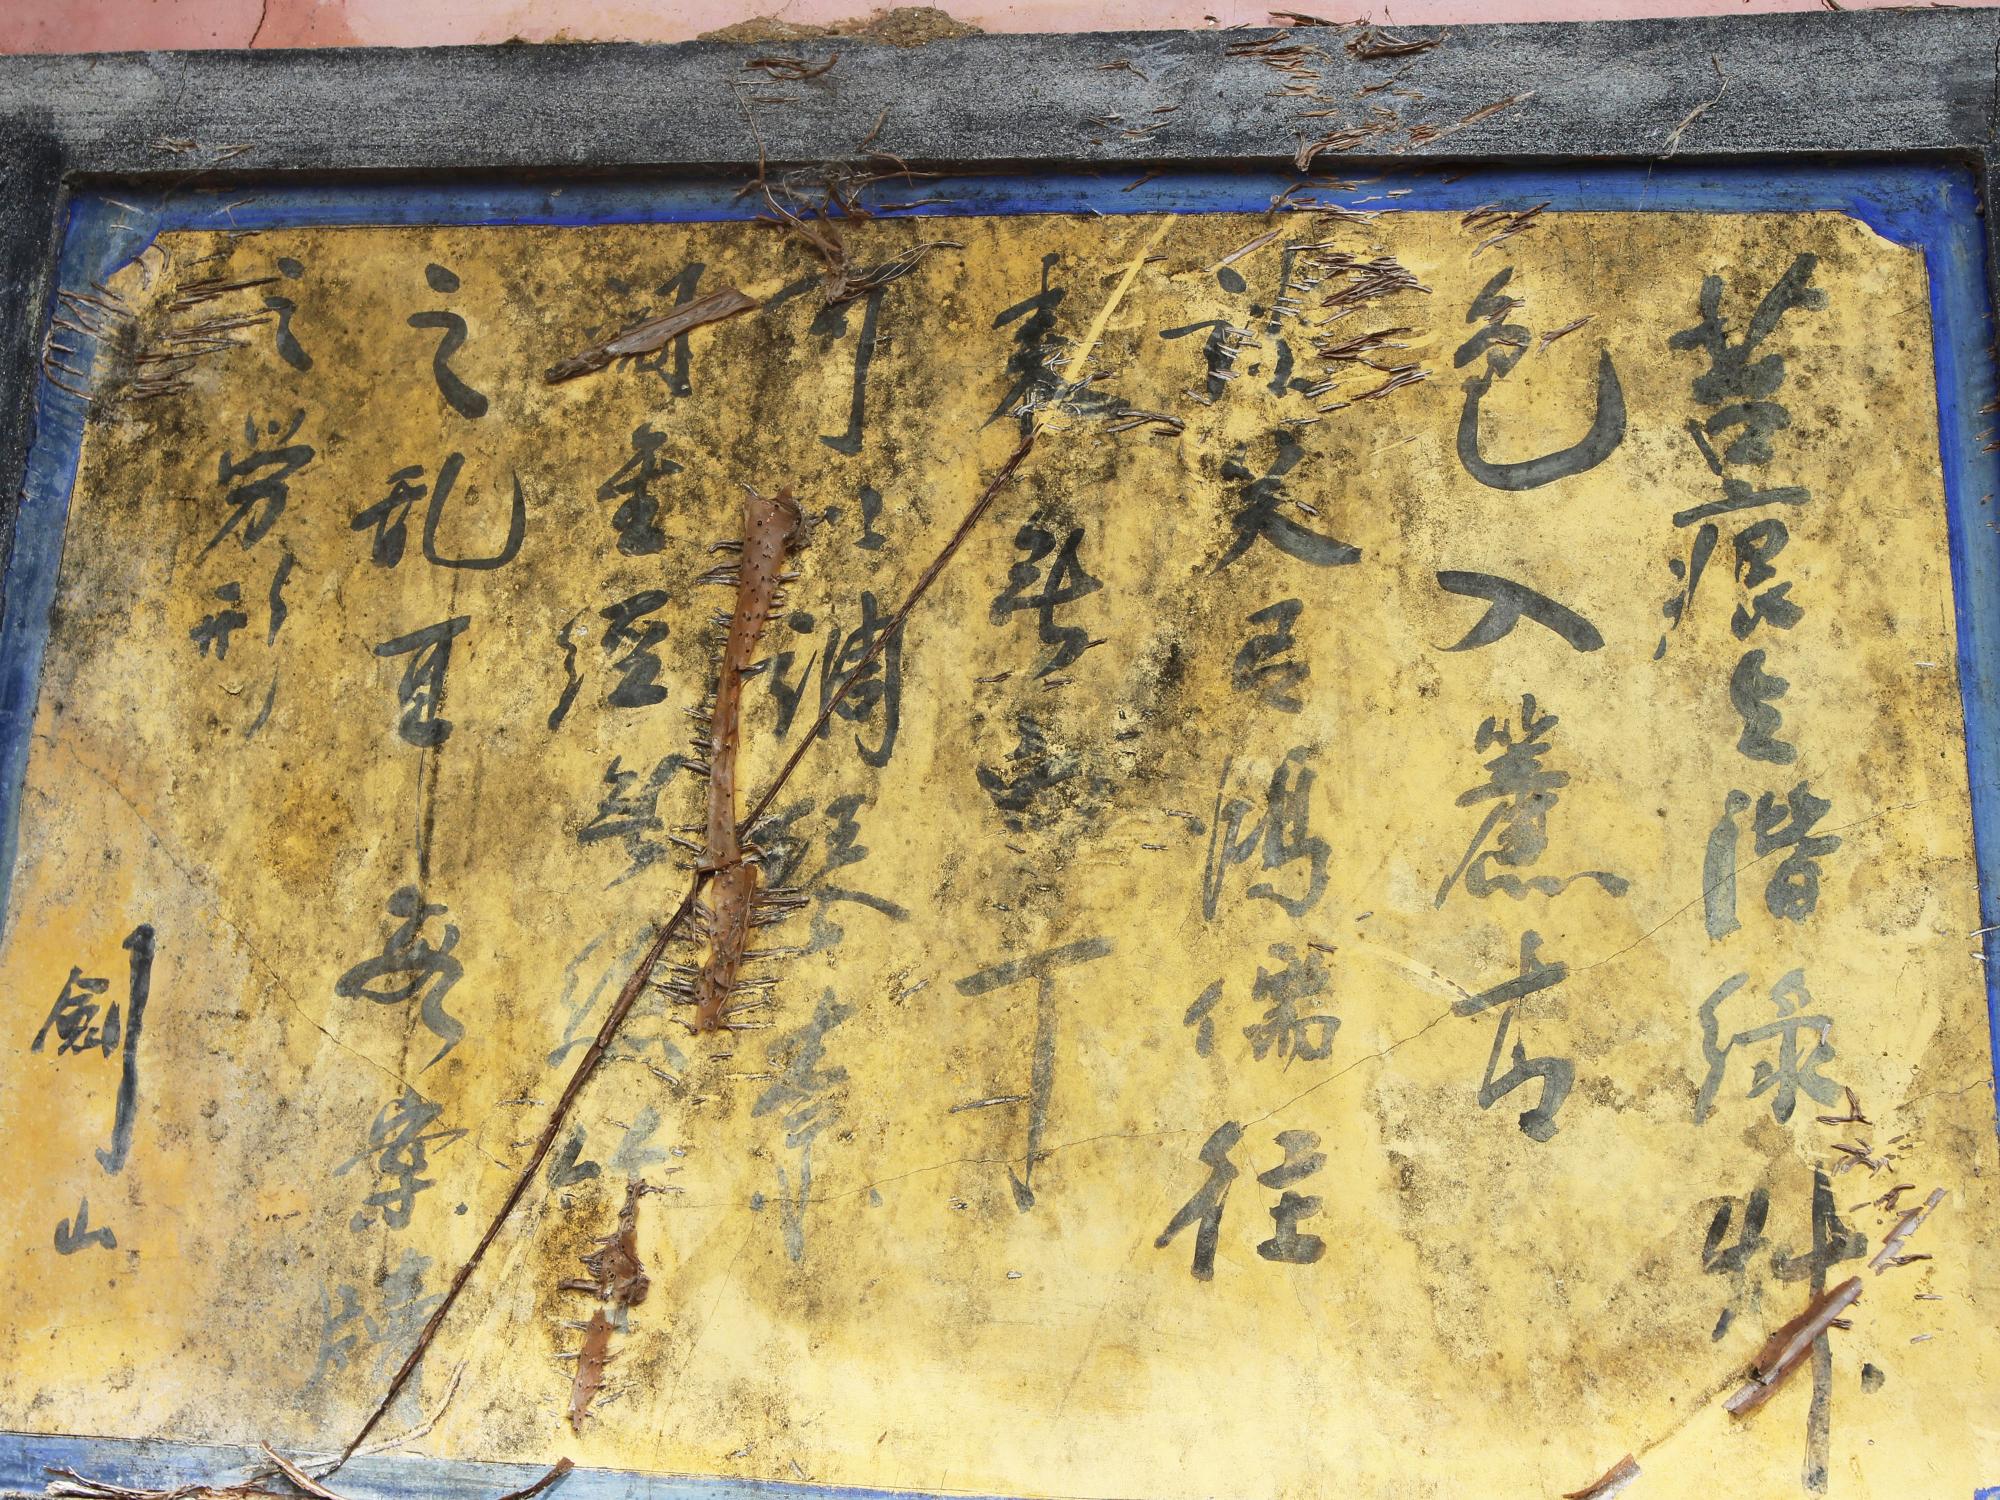 苔痕上階綠艸
色入簾青
談笑有鴻儒往
来無白丁
可以調琴素
閱金經無絲竹
之乱耳無案牘
之劳形
劍山